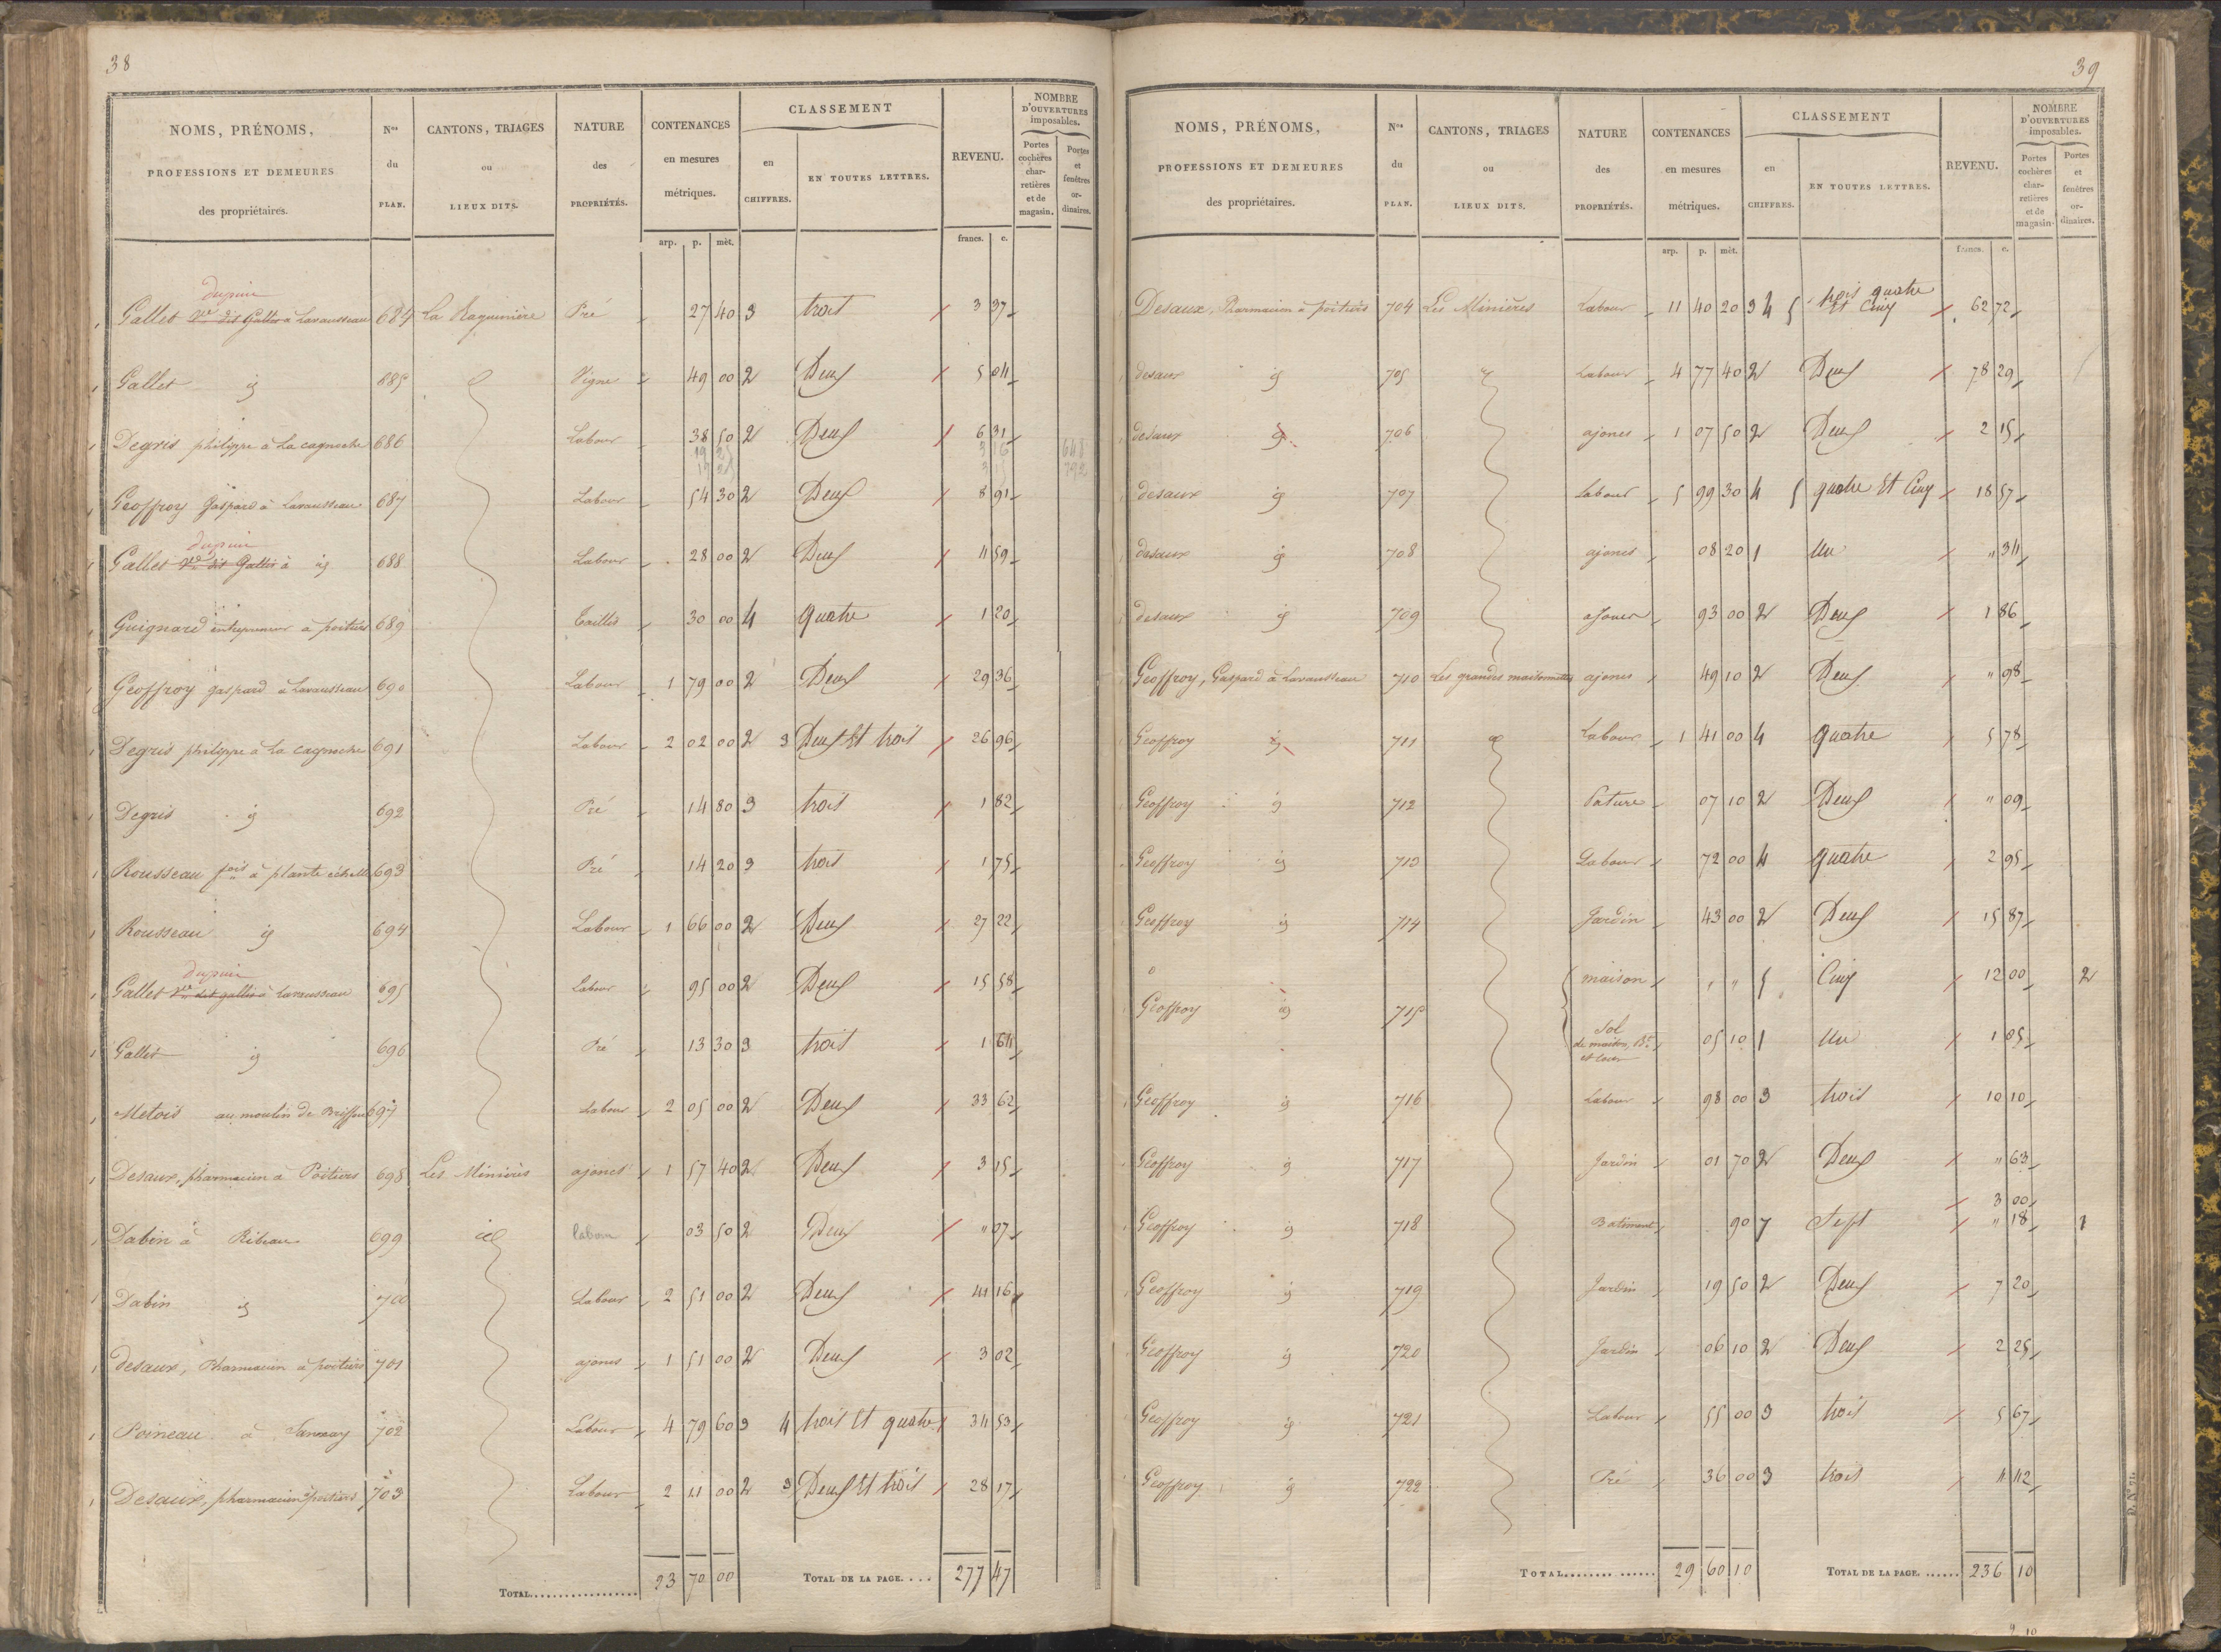 38
NOMS, PRÉNOMS, PROFESSIONS ET DEMEURES des propriétaires. Nos du PLAN. CANTONS, TRIAGES ou LIEUX DITS. NATURE des PROPRIÉTÉS. CONTENANCES en mesures métriques. CLASSEMENT en CHIFFRES. EN TOUTES LETTRES. REVENU. NOMBRE D'OUVERTURES imposables. Portes cochères charretières et de magasin. Portes et fenêtres ordinaires.
arp. p. mèt. francs. c.
dupuie
Gallet Ve dit Gallet à Lavausseau 684 La Raquinière Pré 27 40 3 trois 3 37
Gallet ig 685 Vigne 49 00 2 Deux 5 04
Degris philippe à La cagnoche 686 Labour 38 50 2 Deux 6 31
19 25 3 16 648
19 25 3 15 792
Geoffroy Gaspard à Lavausseau 687 Labour 54 30 2 Deux 8 91
dupuie
Gallet Ve dit Gallet à ig 688 Labour 28 00 2 Deux 4 59
Guignard entrepreneur à poitiers 689 Taillis 30 00 4 quatre 1 20
Geoffroy gaspard à Lavausseau 690 Labour 1 79 00 2 Deux 29 36
Degris philippe à La cagnoche 691 Labour 2 02 00 2 3 Deux Et trois 26 96
Degris ig 692 Pré 14 80 3 trois 1 82
Rousseau fois à plante échelle 693 Pré 14 20 3 trois 1 75
Rousseau ig 694 Labour 1 66 00 2 Deux 27 22
dupuie
Gallet Ve dit gallet à Lavausseau 695 Labour 95 00 2 Deux 15 58
Gallet ig 696 Pré 13 30 3 trois 1 64
Metois au moulin de Briffou 697 Labour 2 05 00 2 Deux 33 62
Desaux, pharmacien à Poitiers 698 Les Minières ajoncs 1 57 40 2 Deux 3 15
Dabin à Ribeau 699 id labour 03 50 2 Deux " 07
Dabin ig 700 Labour 2 51 00 2 Deux 41 16
desaux, Pharmacien à poitiers 701 ajoncs 1 51 00 2 Deux 3 02
Poineau à Sanxay 702 Labour 4 79 60 3 4 trois Et quatre 34 53
Desaux, pharmacien à poitiers 703 Labour 2 11 00 2 3 Deux Et trois 28 17
TOTAL 23 70 00 TOTAL DE LA PAGE 277 47
39
NOMS, PRÉNOMS, PROFESSIONS ET DEMEURES des propriétaires. Nos du PLAN. CANTONS, TRIAGES ou LIEUX DITS. NATURE des PROPRIÉTÉS. CONTENANCES en mesures métriques. CLASSEMENT en CHIFFRES. EN TOUTES LETTRES. REVENU. NOMBRE D'OUVERTURES imposables. Portes cochères charretières et de magasin. Portes et fenêtres ordinaires.
arp. p. mèt. francs. c.
Desaux, Pharmacien à poitiers 704 Les Minières Labour 11 40 20 3 4 5 trois quatre Et Cinq 62 72
desaux ig 705 Labour 4 77 40 2 Deux 78 29
desaux ig 706 ajoncs 1 07 50 2 Deux 2 15
desaux ig 707 labour 5 99 30 4 5 quatre Et Cinq 18 57
desaux ig 708 ajoncs 08 20 1 Un " 34
desaux ig 709 ajoncs 93 00 2 Deux 1 86
Geoffroy, Gaspard à Lavausseau 710 Les grandes maisonnettes ajoncs 49 10 2 Deux " 98
Geoffroy ig 711 Labour 1 41 00 4 quatre 5 78
Geoffroy ig 712 Pature 07 10 2 Deux " 09
Geoffroy ig 713 Labour 72 00 4 quatre 2 95
Geoffroy ig 714 Jardin 43 00 2 Deux 15 87
maison " " 5 Cinq 12 00 2
Geoffroy ig 715
Sol de maison, Bt et cour 05 10 1 Un 1 05
Geoffroy ig 716 Labour 98 00 3 trois 10 10
Geoffroy ig 717 Jardin 01 70 2 Deux " 63
3 00
Geoffroy ig 718 Batiment 90 7 Sept " 18 1
Geoffroy ig 719 Jardin 19 50 2 Deux 7 20
Geoffroy ig 720 Jardin 06 10 2 Deux 2 25
Geoffroy ig 721 Labour 55 00 3 trois 5 67
Geoffroy ig 722 Pré 36 00 3 trois 4 42
TOTAL 29 60 10 TOTAL DE LA PAGE 236 10